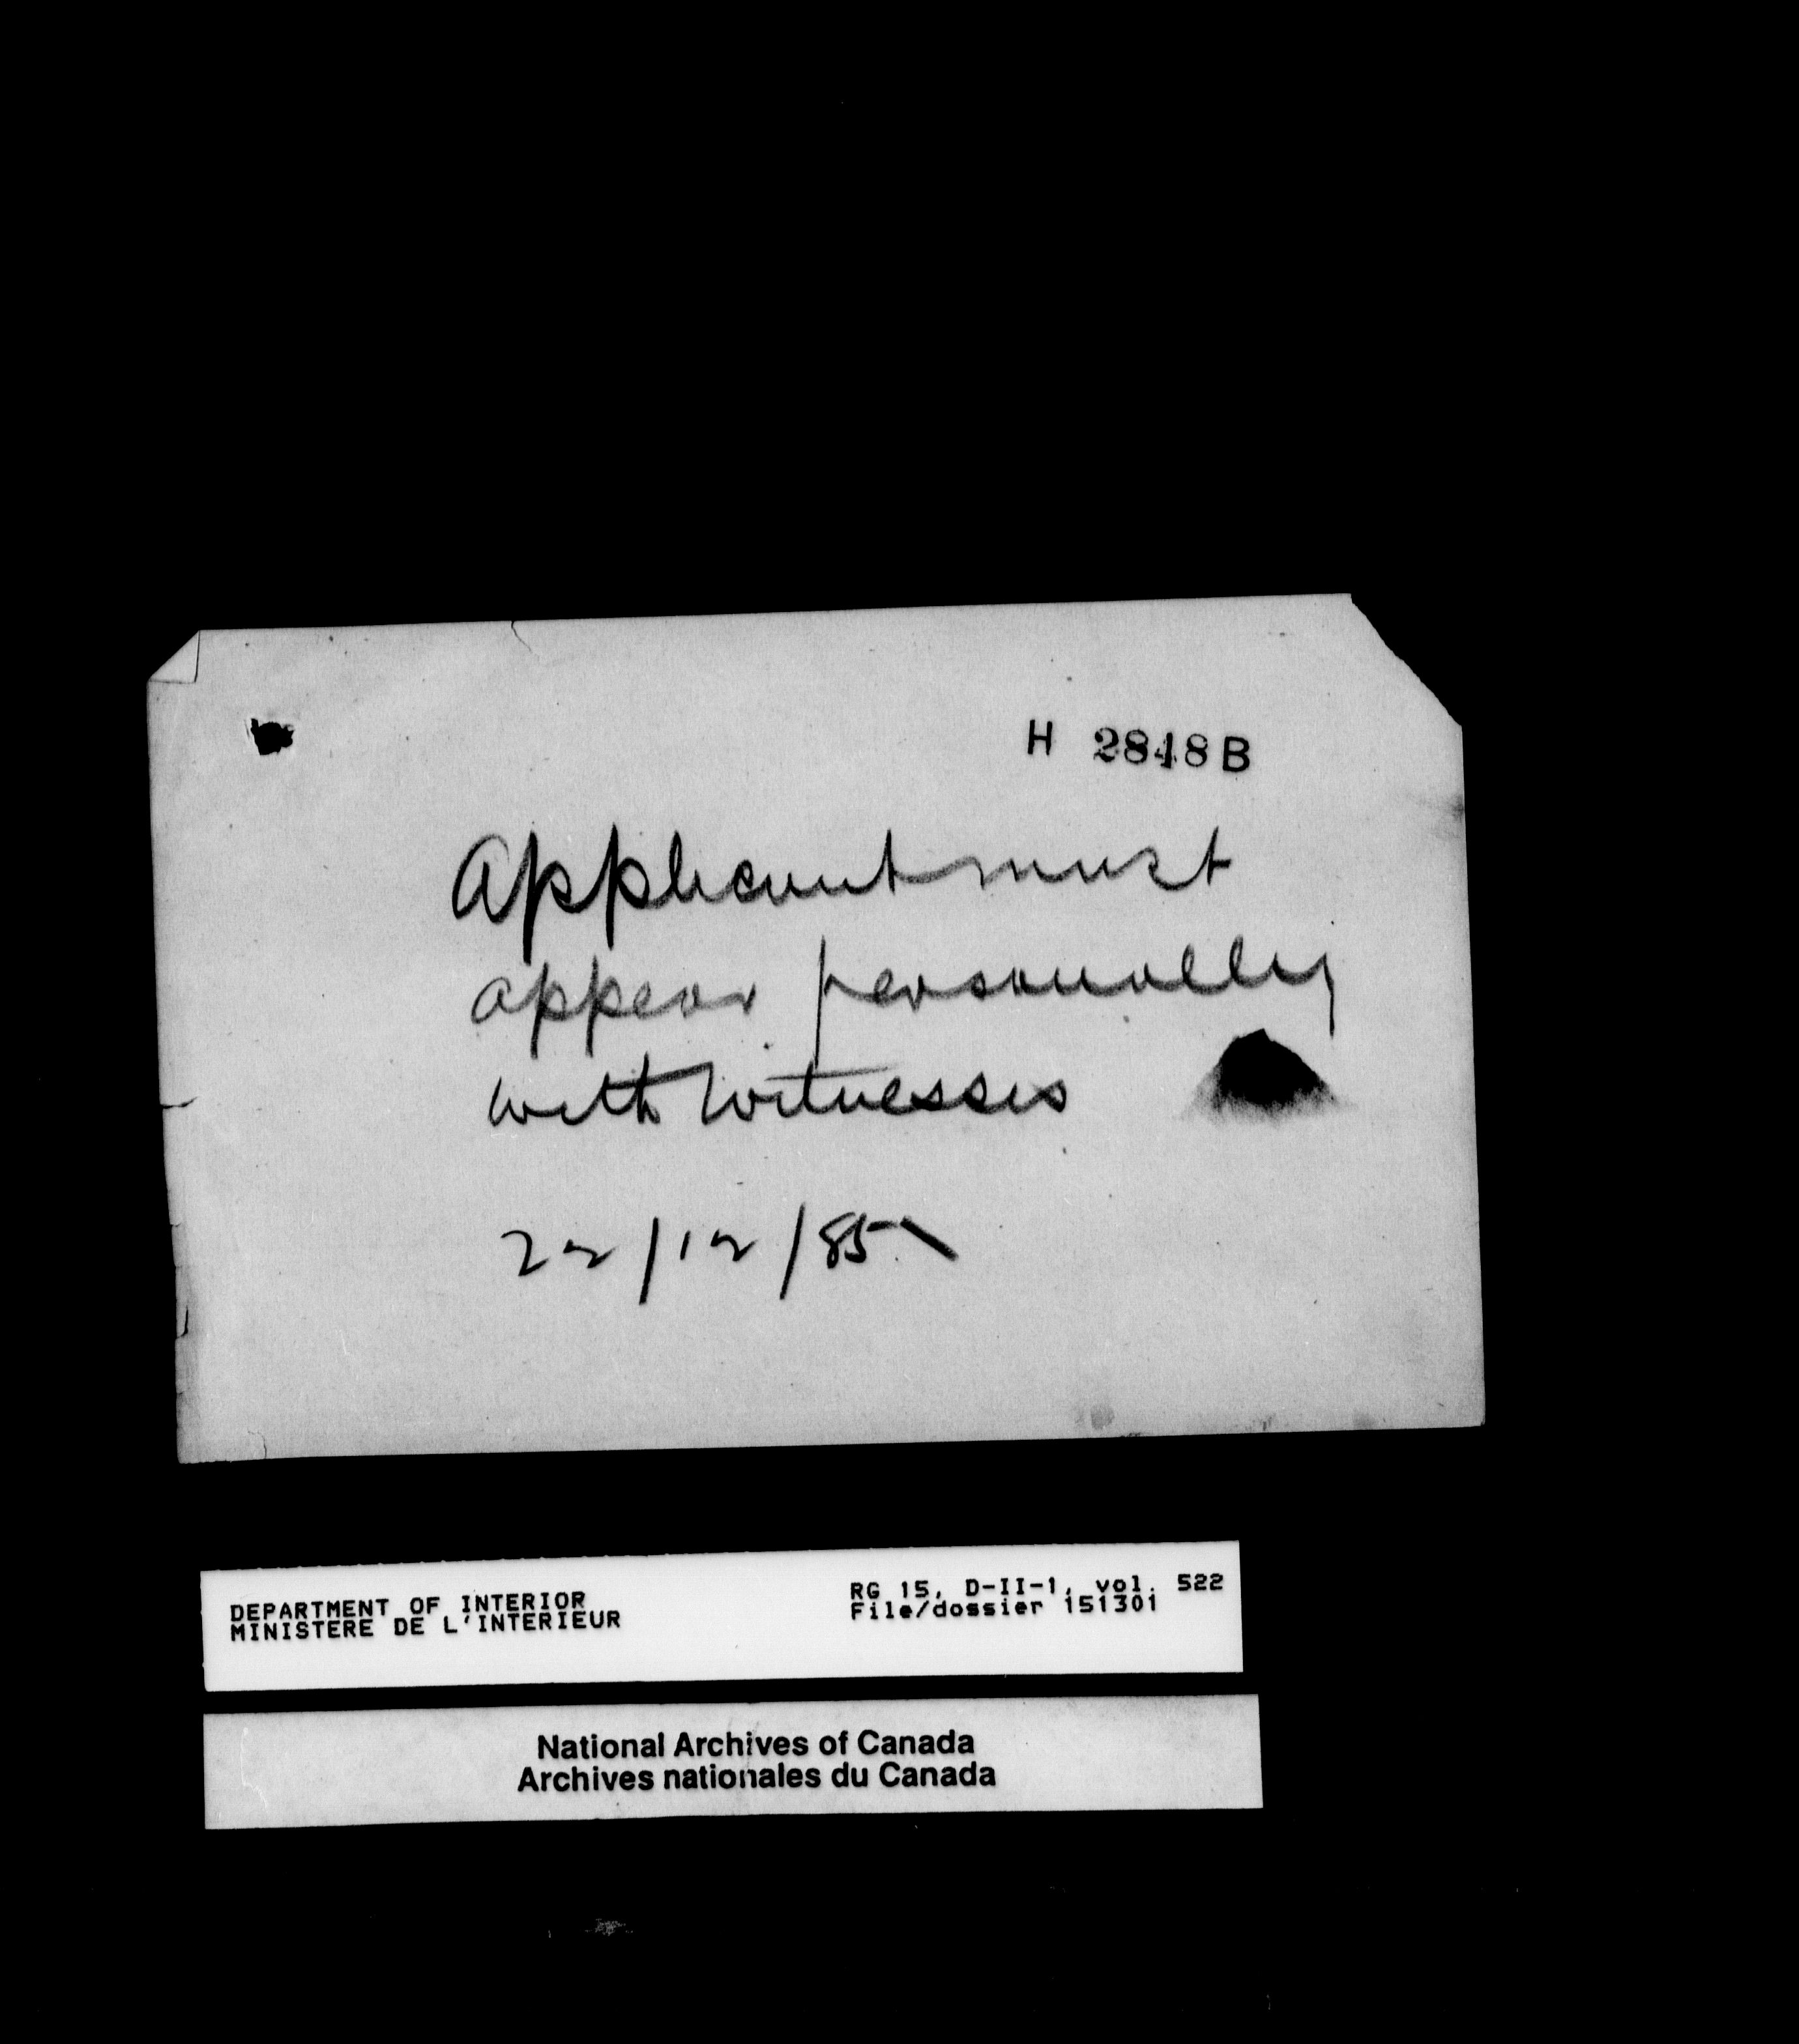 H 2848 B
Applicant must
appear personally
with witnesses
22/12/85
DEPARTMENT OF INTERIOR
MINISTERE DE L'INTERIEUR
RG 15, D-II-1, vol. 522
File/dossier 151301
National Archives of Canada
Archives nationales du Canada